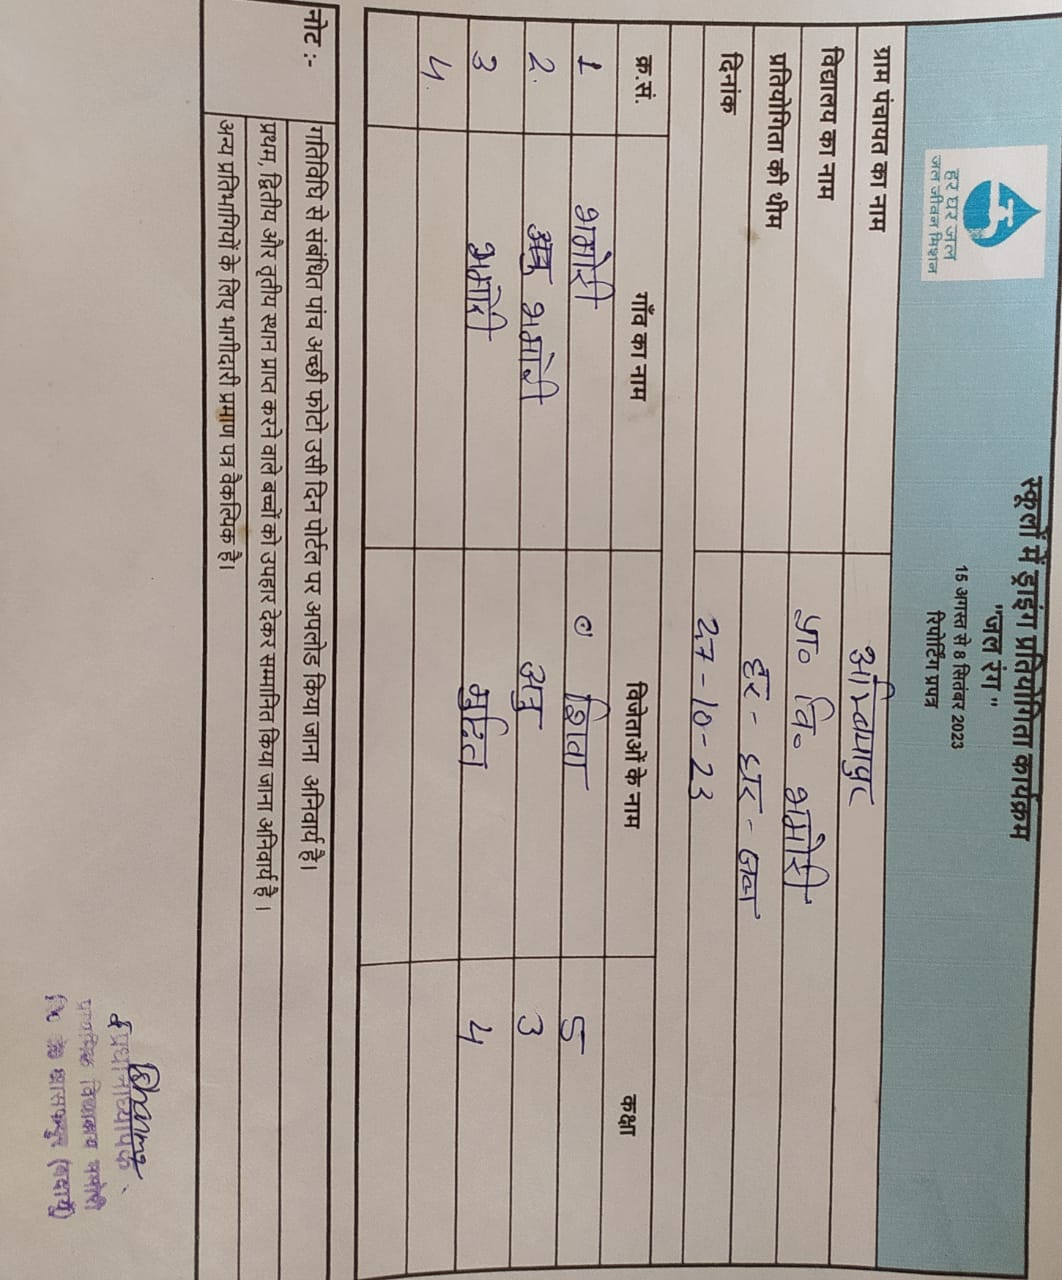 स्कूलों में ड्राइंग प्रतियोगिता कार्यक्रम
"जल रंग"
15 अगस्त से 8 सितंबर 2023
रिपोर्टिंग प्रपत्र
हर घर जल
जल जीवन मिशन
ग्राम पंचायत का नाम
विद्यालय का नाम प्रा० वि० भमोरी
प्रतियोगिता की थीम हर - घर - जल
दिनांक 27-10-23
क्र.सं. गाँव का नाम विजेताओं के नाम कक्षा
1 भमोरी शिवा 5
2. भमोरी अनु 3
3 भमोरी मुदित 4
4.
नोट :- गतिविधि से संबंधित पांच अच्छी फोटो उसी दिन पोर्टल पर अपलोड किया जाना अनिवार्य है।
प्रथम, द्वितीय और तृतीय स्थान प्राप्त करने वाले बच्चों को उपहार देकर सम्मानित किया जाना अनिवार्य है ।
अन्य प्रतिभागियों के लिए भागीदारी प्रमाण पत्र वैकल्पिक है।
प्रधानाध्यापक
प्राथमिक विद्यालय भमोरी